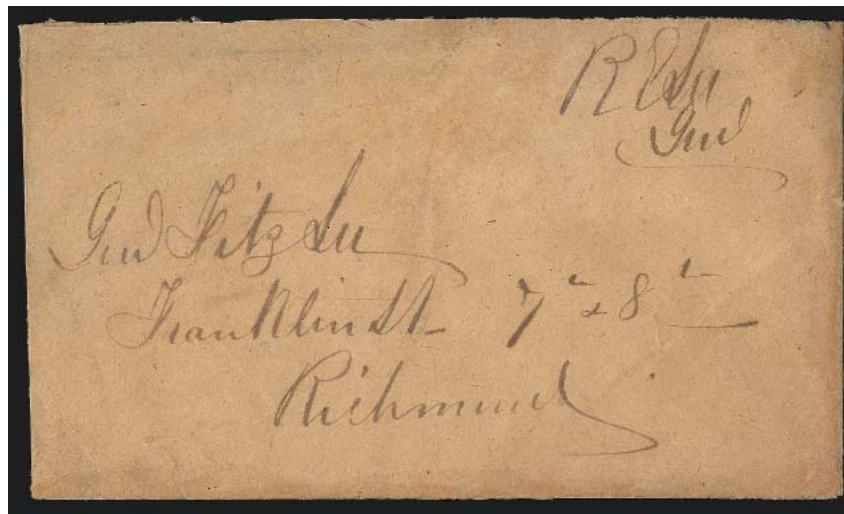 R E Lee
Genl
Genl Fitz Lee
Franklin St 7th & 8th
Richmond